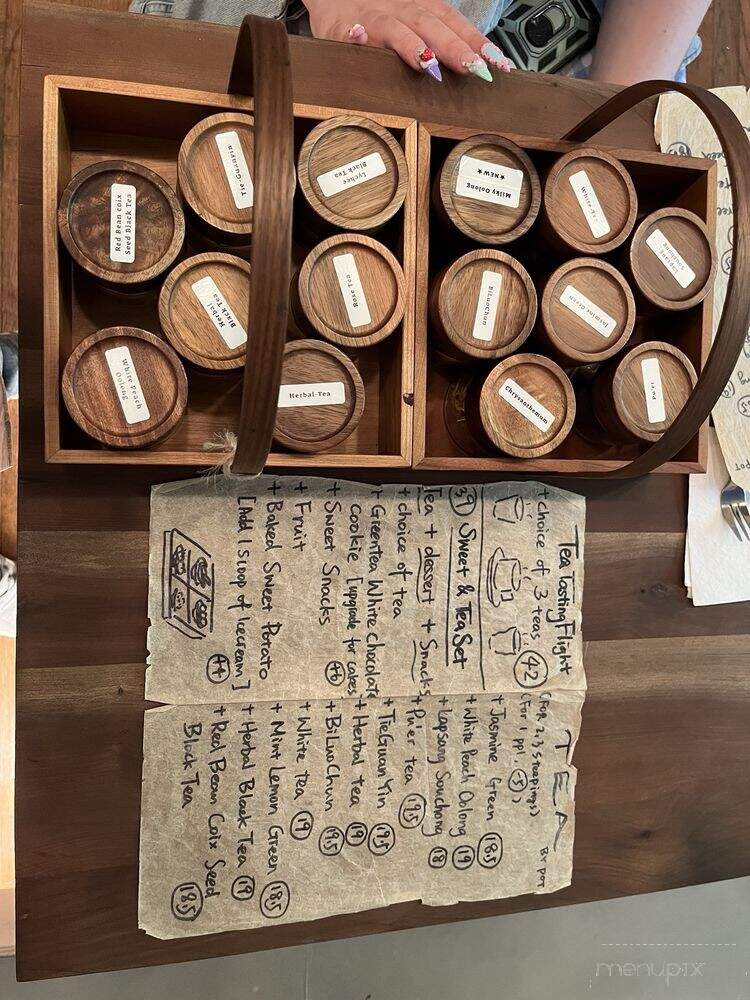 Red Bean coix
Seed Black Tea
Tie-Guanyin
Lychee
Black Tea
Herbal
Black Tea
Rose Tea
White Peach
Oolong
Herbal-Tea
Milky Oolong
★NEW★
White-Tea
Lapsang
Souchong
BiLuoChun
Jasmine Green
Chrysanthemum
Pu'er
Tea Tasting Flight
+ choice of 3 teas (42)
(39) Sweet & Tea Set
Tea + dessert + Snacks
+ choice of tea
+ Greentea White chocolate
cookie [upgrade for cakes
+ Sweet Snacks (+6)
+ Fruit
+ Baked Sweet Potato
[Add 1 scoop of Icecream] (+4)
TEA BY POT
(For 2,3 steepings)
(For 1 ppl, (-5))
+ Jasmine Green (18.5)
+ White Peach Oolong (19)
+ Lapsang Souchong (18)
+ Pu'er tea (19.5)
+ TieGuanYin (19.5)
+ Herbal tea (19)
+ BiLuoChun (19.5)
+ White tea (19)
+ Mint Lemon Green (18.5)
+ Herbal Black Tea (19)
+ Red Bean Coix Seed
Black Tea (18.5)
menupix